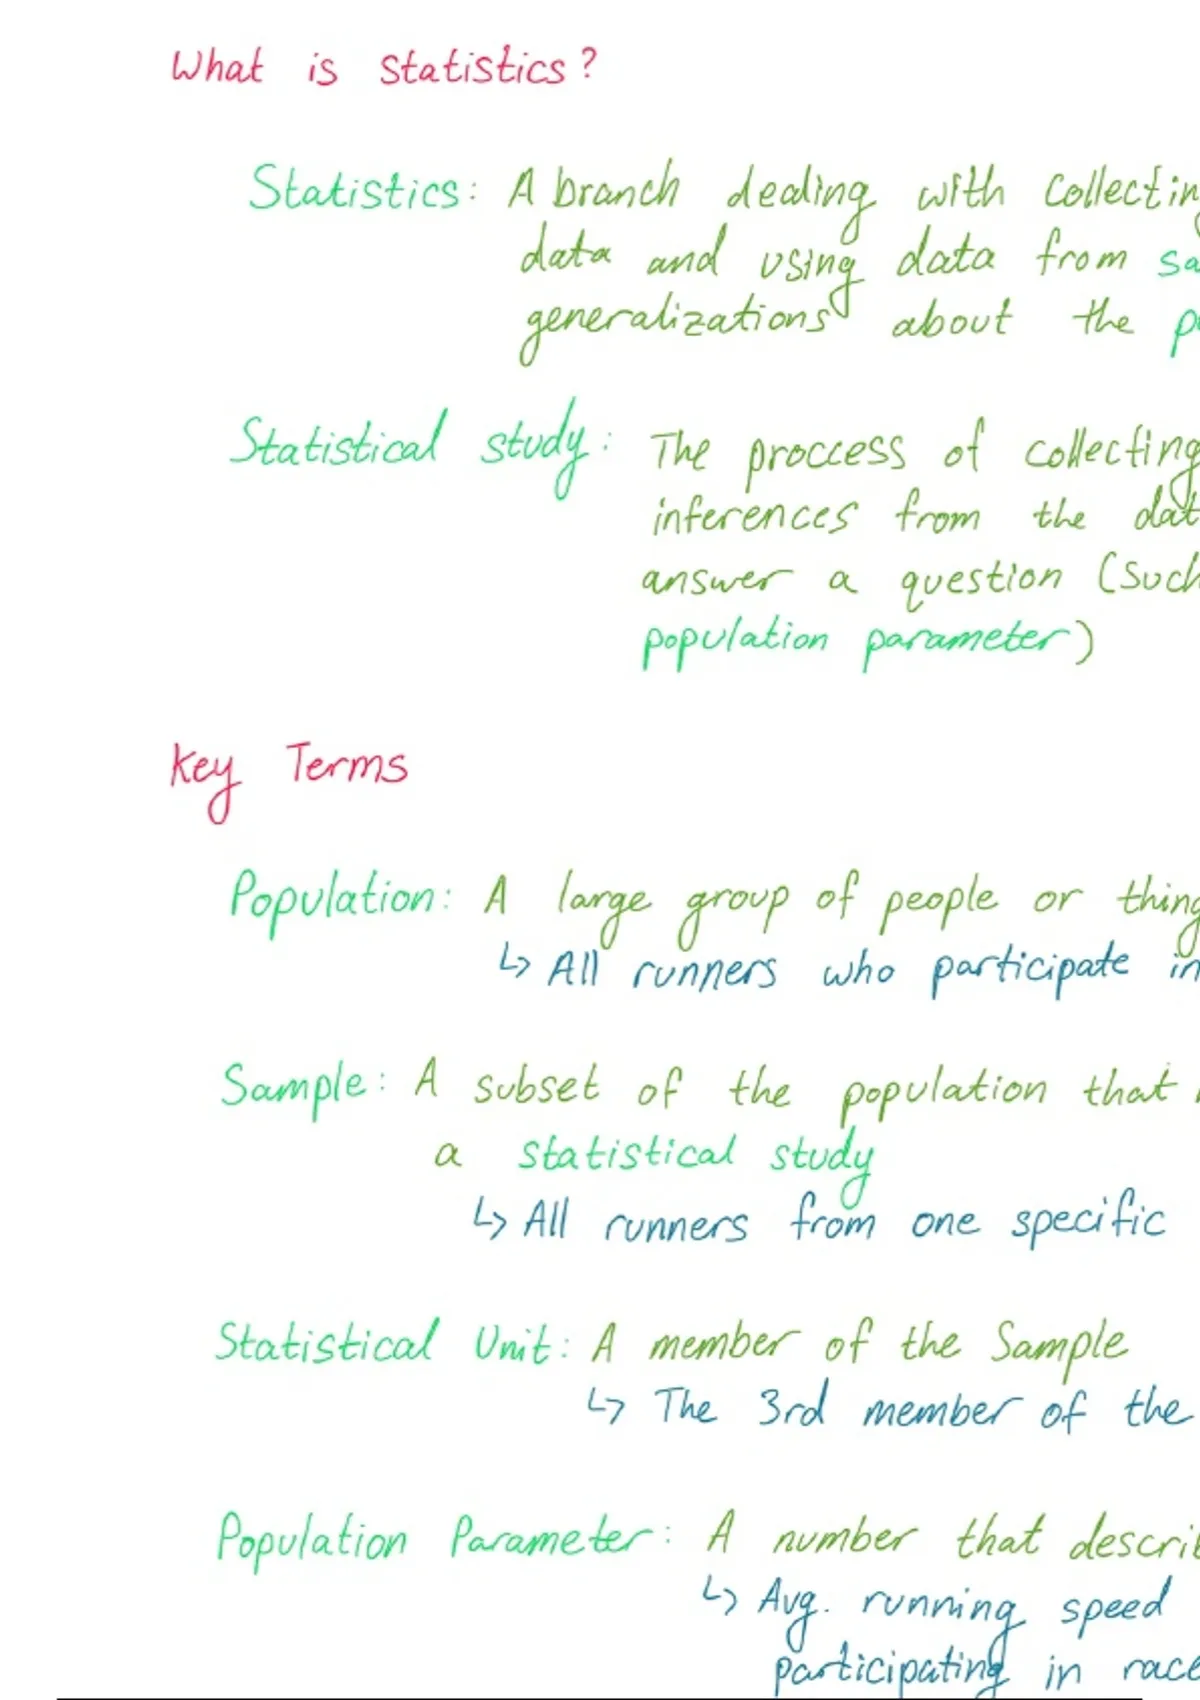 What is statistics?
Statistics: A branch dealing with collectin
data and using data from sa
generalizations about the p
Statistical study: The proccess of collecting
inferences from the dat
answer a question (such
population parameter)
Key Terms
Population: A large group of people or thing
↳ All runners who participate in
Sample: A subset of the population that
a statistical study
↳ All runners from one specific
Statistical Unit: A member of the Sample
↳ The 3rd member of the
Population Parameter: A number that describ
↳ Avg. running speed
participating in race